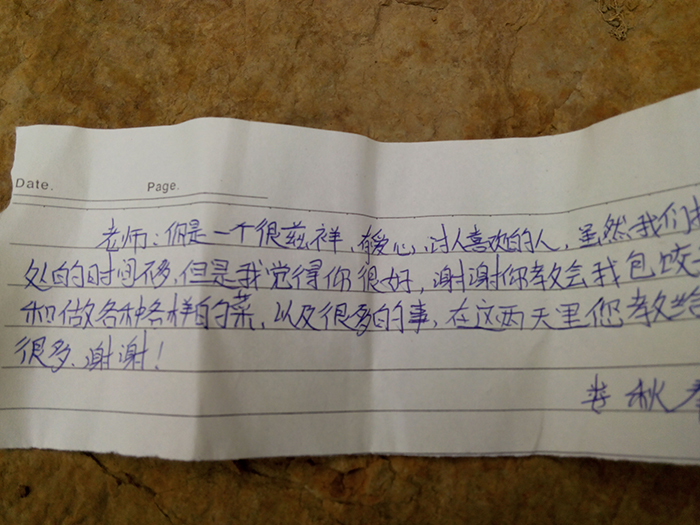 Date. Page.
老师:你是一个很兹祥、有爱心,讨人喜欢的人,虽然我们
处的时间不多,但是我觉得你很好,谢谢你教会我包饺
和做各种各样的菜,以及很多的事,在这两天里您教给
很多、谢谢!
秋